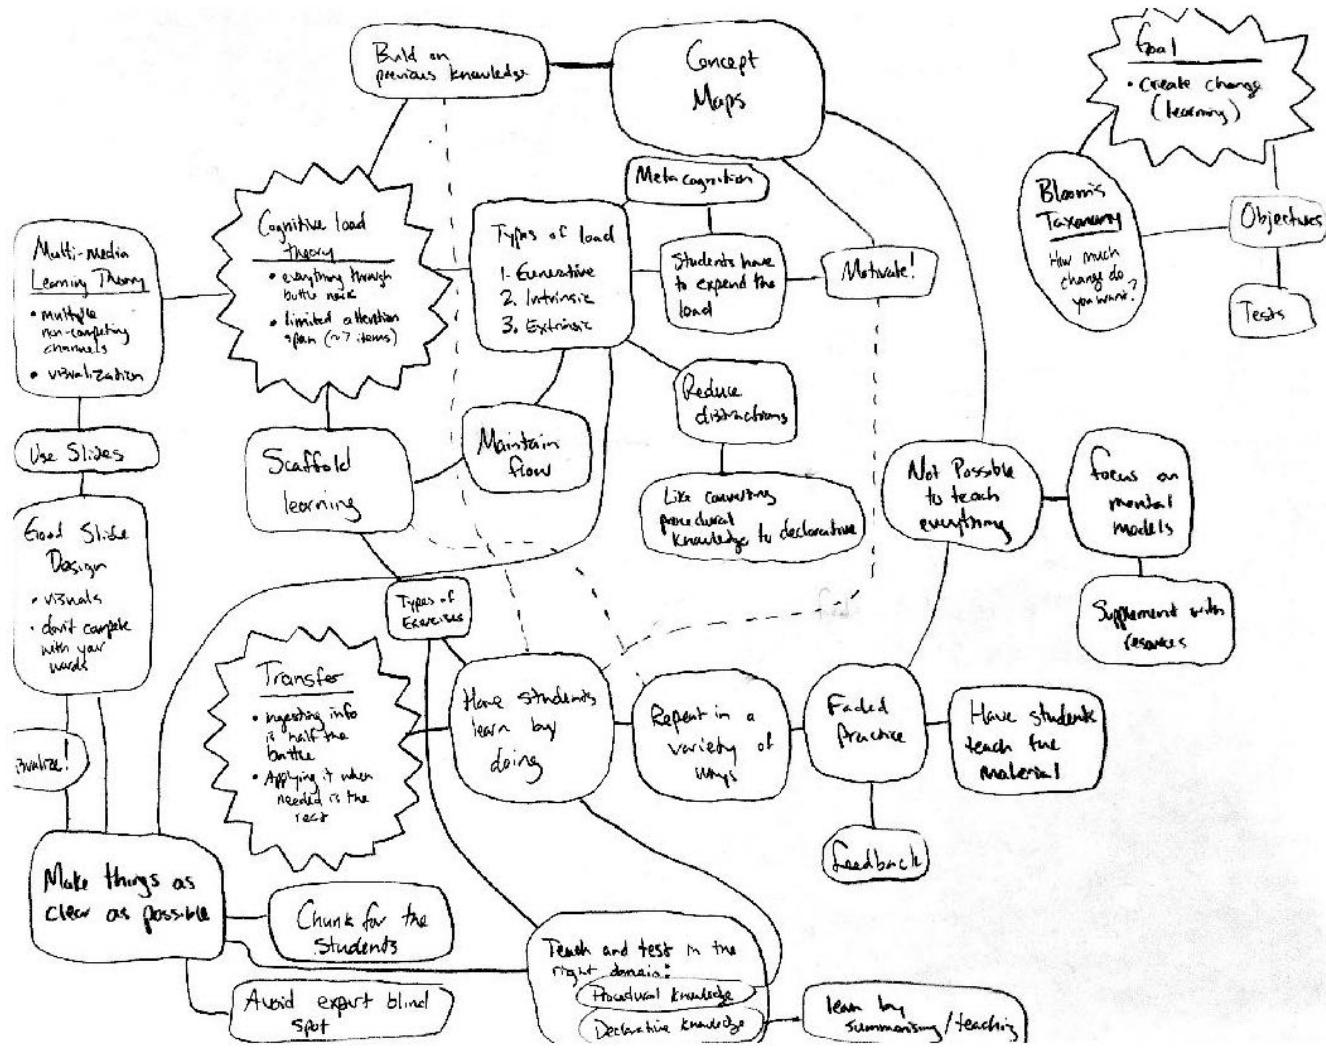 Build on
previous knowledge
Concept
Maps
Goal
• create change
(learning)
Metacognition
Bloom's
Taxonomy
How much
change do
you want?
Objectives
Tests
Multi-media
Learning Theory
• multiple
non-competing
channels
• visualization
Cognitive load
theory
• everything through
bottle neck
• limited attention
span (~7 items)
Types of load
1. Generative
2. Intrinsic
3. Extrinsic
Students have
to expend the
load
Motivate!
Reduce
distractions
Use Slides
Scaffold
learning
Maintain
flow
Like converting
procedural
knowledge to declarative
Not Possible
to teach
everything
Focus on
mental
models
Good Slide
Design
• visuals
• don't compete
with your
words
Types of
Exercises
Supplement with
resources
Transfer
• ingesting info
is half the
battle
• Applying it when
needed is the
rest
Have students
learn by
doing
Repeat in a
variety of
ways
Faded
Practice
Have students
teach the
material
Feedback
Make things as
clear as possible
Chunk for the
students
Avoid expert blind
spot
Teach and test in the
right domain:
Procedural knowledge
Declarative knowledge
learn by
summarising/teaching